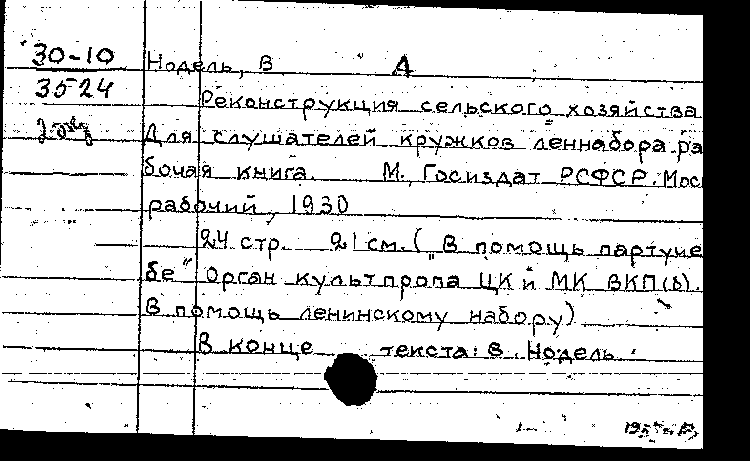 30-10
3524
2 экз
Нодель, В
А
Реконструкция сельского хозяйства
Для слушателей кружков леннабора. ра
бочая книга. М., Госиздат РСФСР. Мос
рабочий, 1930
24 стр. 21 см. („В помощь партуче
бе" Орган культпропа ЦК и МК ВКП(б).
В помощь ленинскому набору)
В конце текста: В. Нодель.